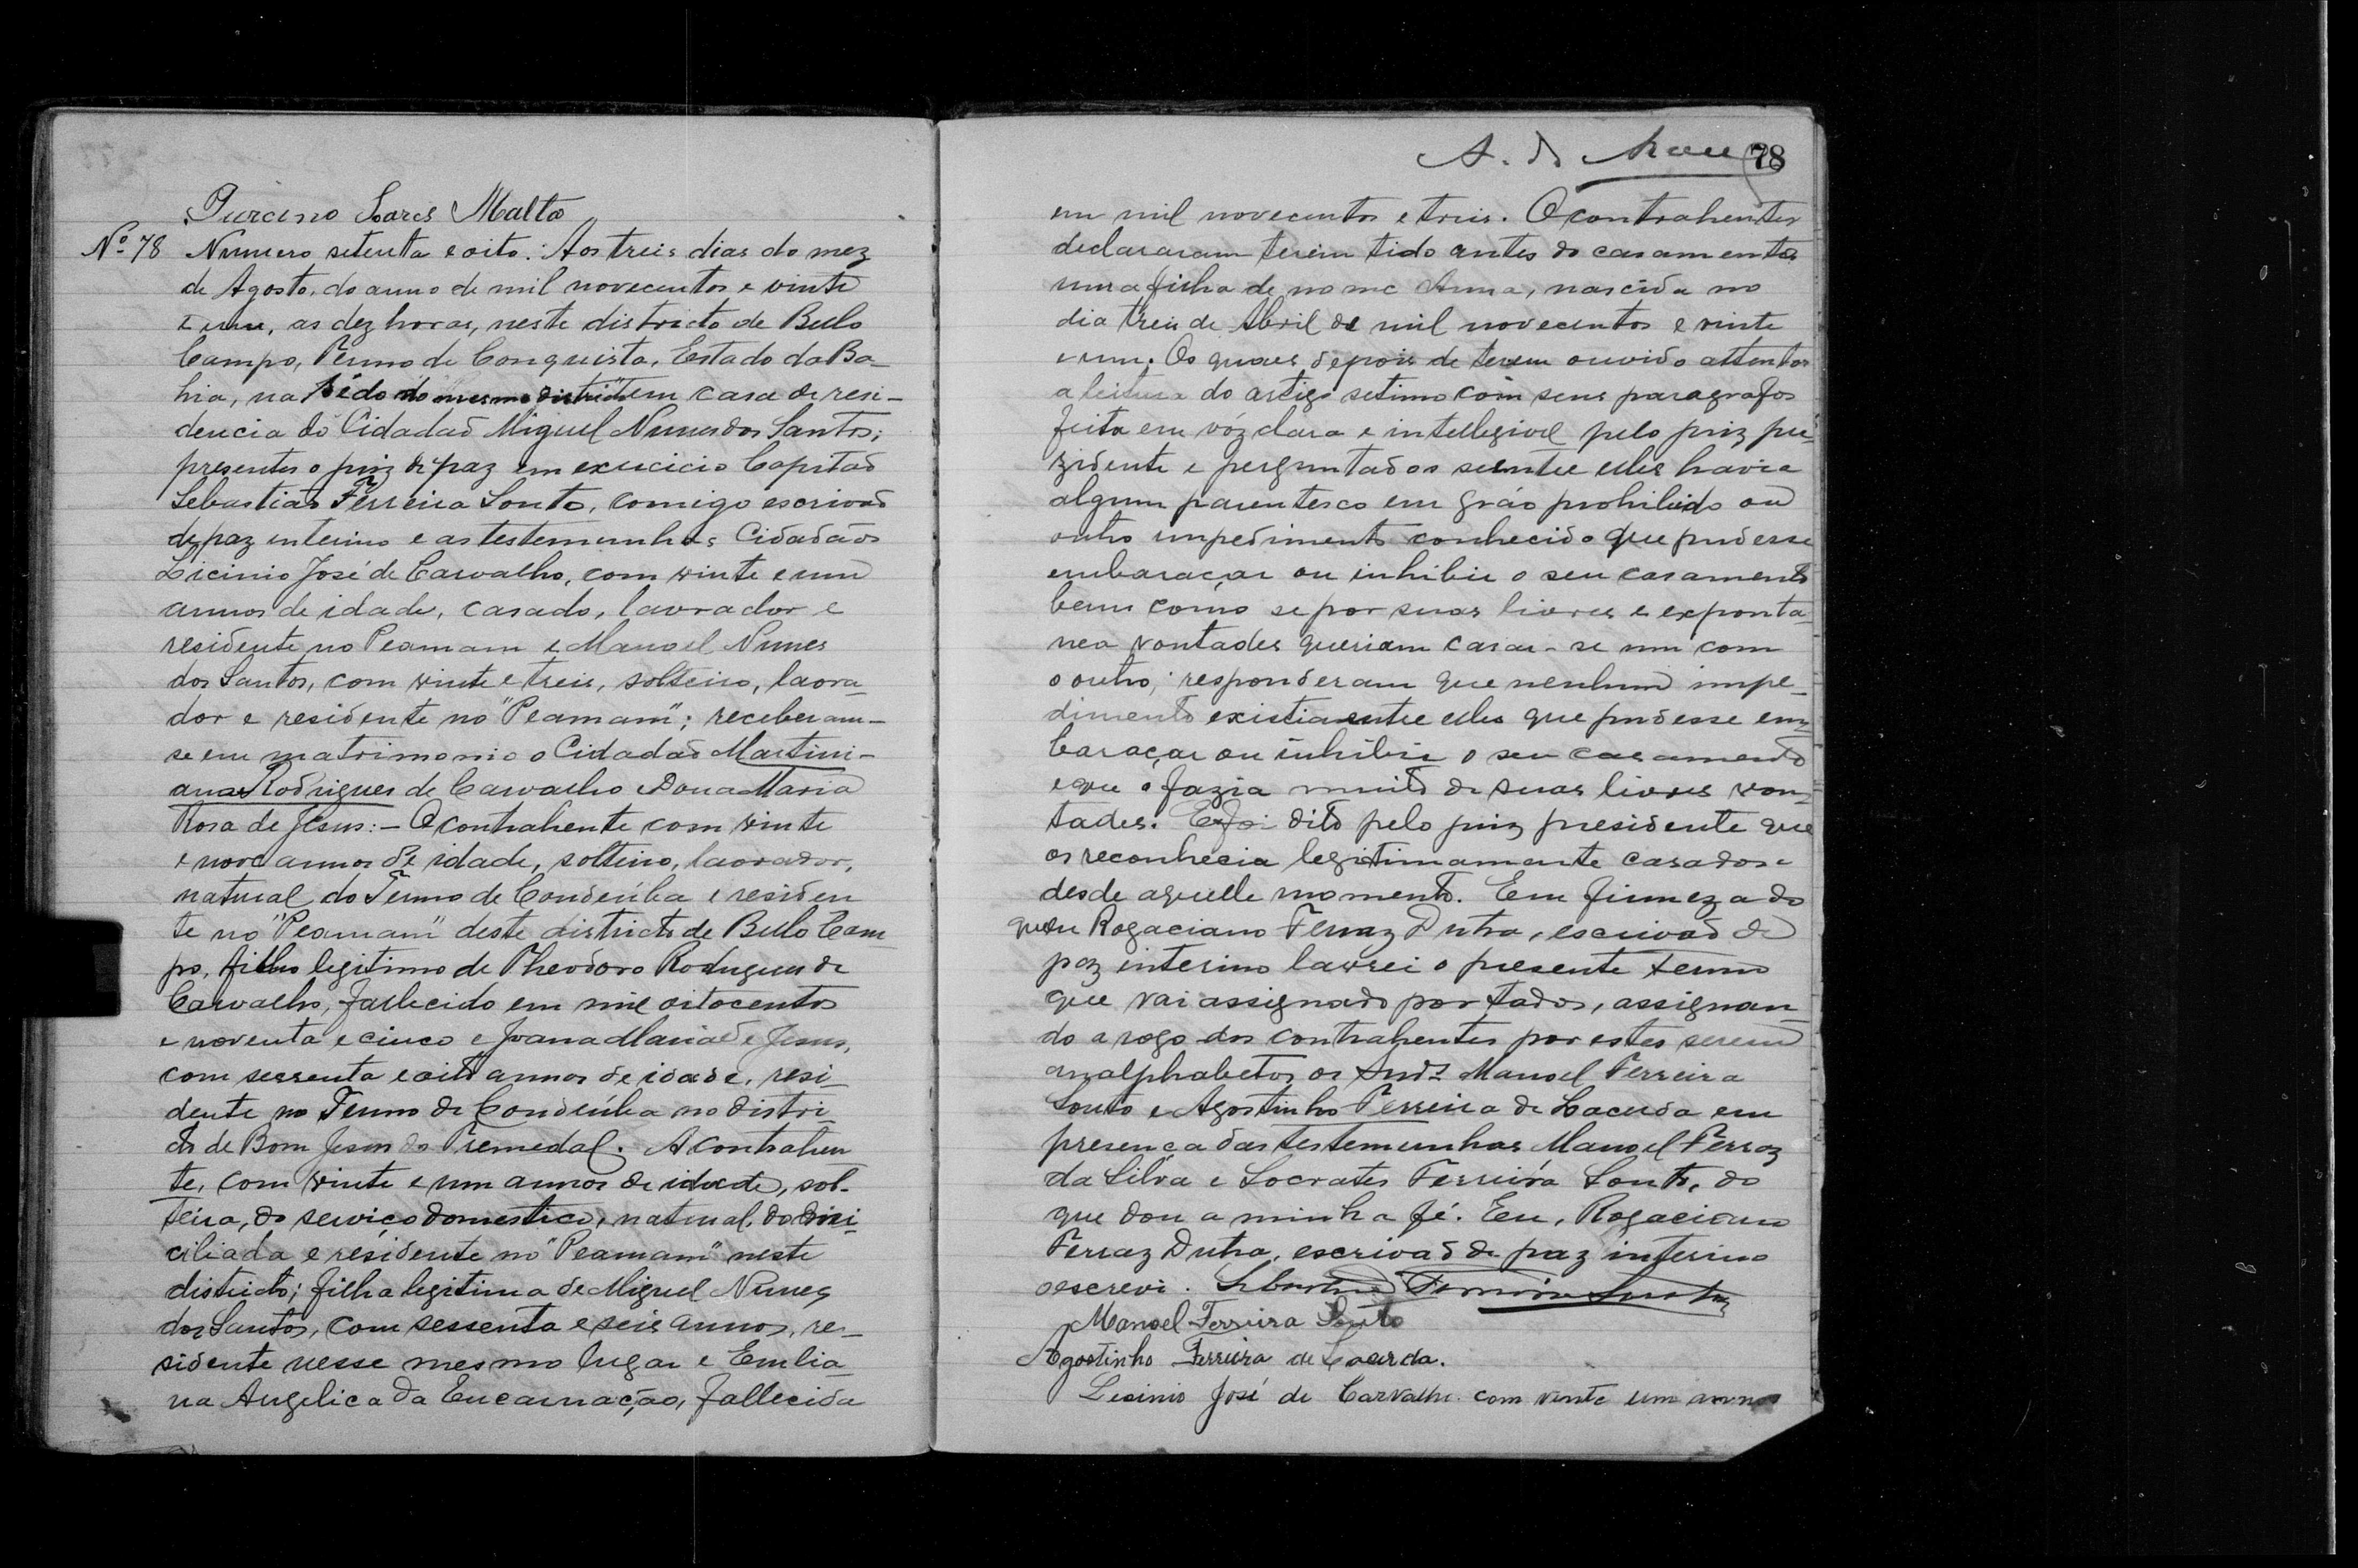 Purcino Soares Malta
Nº 78 Numero setenta e oito: Aos treis dias do mez
de Agosto, do anno de mil novecentos e vinte
e um, as dez horas, neste districto de Bello
Campo, Termo de Conquista, Estado da Ba-
hia, na séde do mesmo districto em casa de resi-
dencia do Cidadaõ Miguel Nunes dos Santos;
presentes o juiz de paz em exercicio Capitaõ
Sebastiaõ Ferreira Souto, comigo escrivaõ
de paz interino e as testemunhas Cidadãos
Licinio José de Carvalho, com vinte e um
annos de idade, casado, lavrador e
residente no Peamam e Manoel Nunes
dos Santos, com vinte e treis, solteiro, lavra-
dor e residente no "Peamam"; receberam-
se em matrimonio o Cidadaõ Martini-
ano Rodrigues de Carvalho e Dona Maria
Rosa de Jesus:- O contrahente com vinte
e nove annos de idade, solteiro, lavrador,
natural do Termo de Condeúba e residen
te no "Peamam" deste districto de Bello Cam
po, filho legitimo de Theodoro Rodrigues de
Carvalho, fallecido em mil oitocentos
e noventa e cinco e Joana Maria de Jesus,
com sessenta e oito annos de idade, resi-
dente no Termo de Condeúba no distri-
cto de Bom Jesus do Tremedal. A contrahen
te, com vinte e um annos de idade, sol-
teira, do serviço domestico, natural, domi
ciliada e residente no "Peamam" neste
districto; filha legitima de Miguel Nunes
dos Santos, com sessenta e seis annos, re-
sidente nesse mesmo lugar e Emilia-
na Angelica da Encarnação, fallecida
A. de 78
em mil novecentos e treis. O contrahentes
declararam terem tido antes do casamento
uma filha de nome Anna, nascida no
dia treis de Abril de mil novecentos e vinte
e um. Os quaes depois de terem ouvido attentos
a leitura do artigo setimo com seus paragrafos
feita em vóz clara e intellegivel pelo juiz pre-
zidente e perguntados se entre elles havia
algum parentesco em gráo prohibido ou
outro impedimento conhecido que pudesse
embaraçar ou inhibir o seu casamento
bem como se por suas livres e exponta
nea vontades queriam casar-se um com
o outro; responderam que nenhum impe-
dimento existia entre elles que pudesse em-
baraçar ou inhibir o seu casamento
e que o fazia muito de suas livres von-
tades. E foi dito pelo juiz presidente que
os reconhecia legitimamente casados
desde aquelle momento. Em firmeza do
que eu Rogaciano Ferraz Dutra, escrivaõ de
paz interino lavrei o presente termo
que vai assignado por todos, assignan-
do a rogo dos contrahentes por estes serem
analphabetos os Manoel Ferreira
Souto e Agostinho Ferreira de Lacerda em
presença das testemunhas Manoel Ferraz
da Silva e Socrates Ferreira Souto, do
que dou a minha fé. Eu, Rogaciano
Ferraz Dutra, escrivaõ de paz interino
o escrevi. Sebastiaõ Ferreira Souto
Manoel Ferreira Souto
Agostinho Ferreira de Lacerda.
Lecinio José de Carvalho com vinte um annos